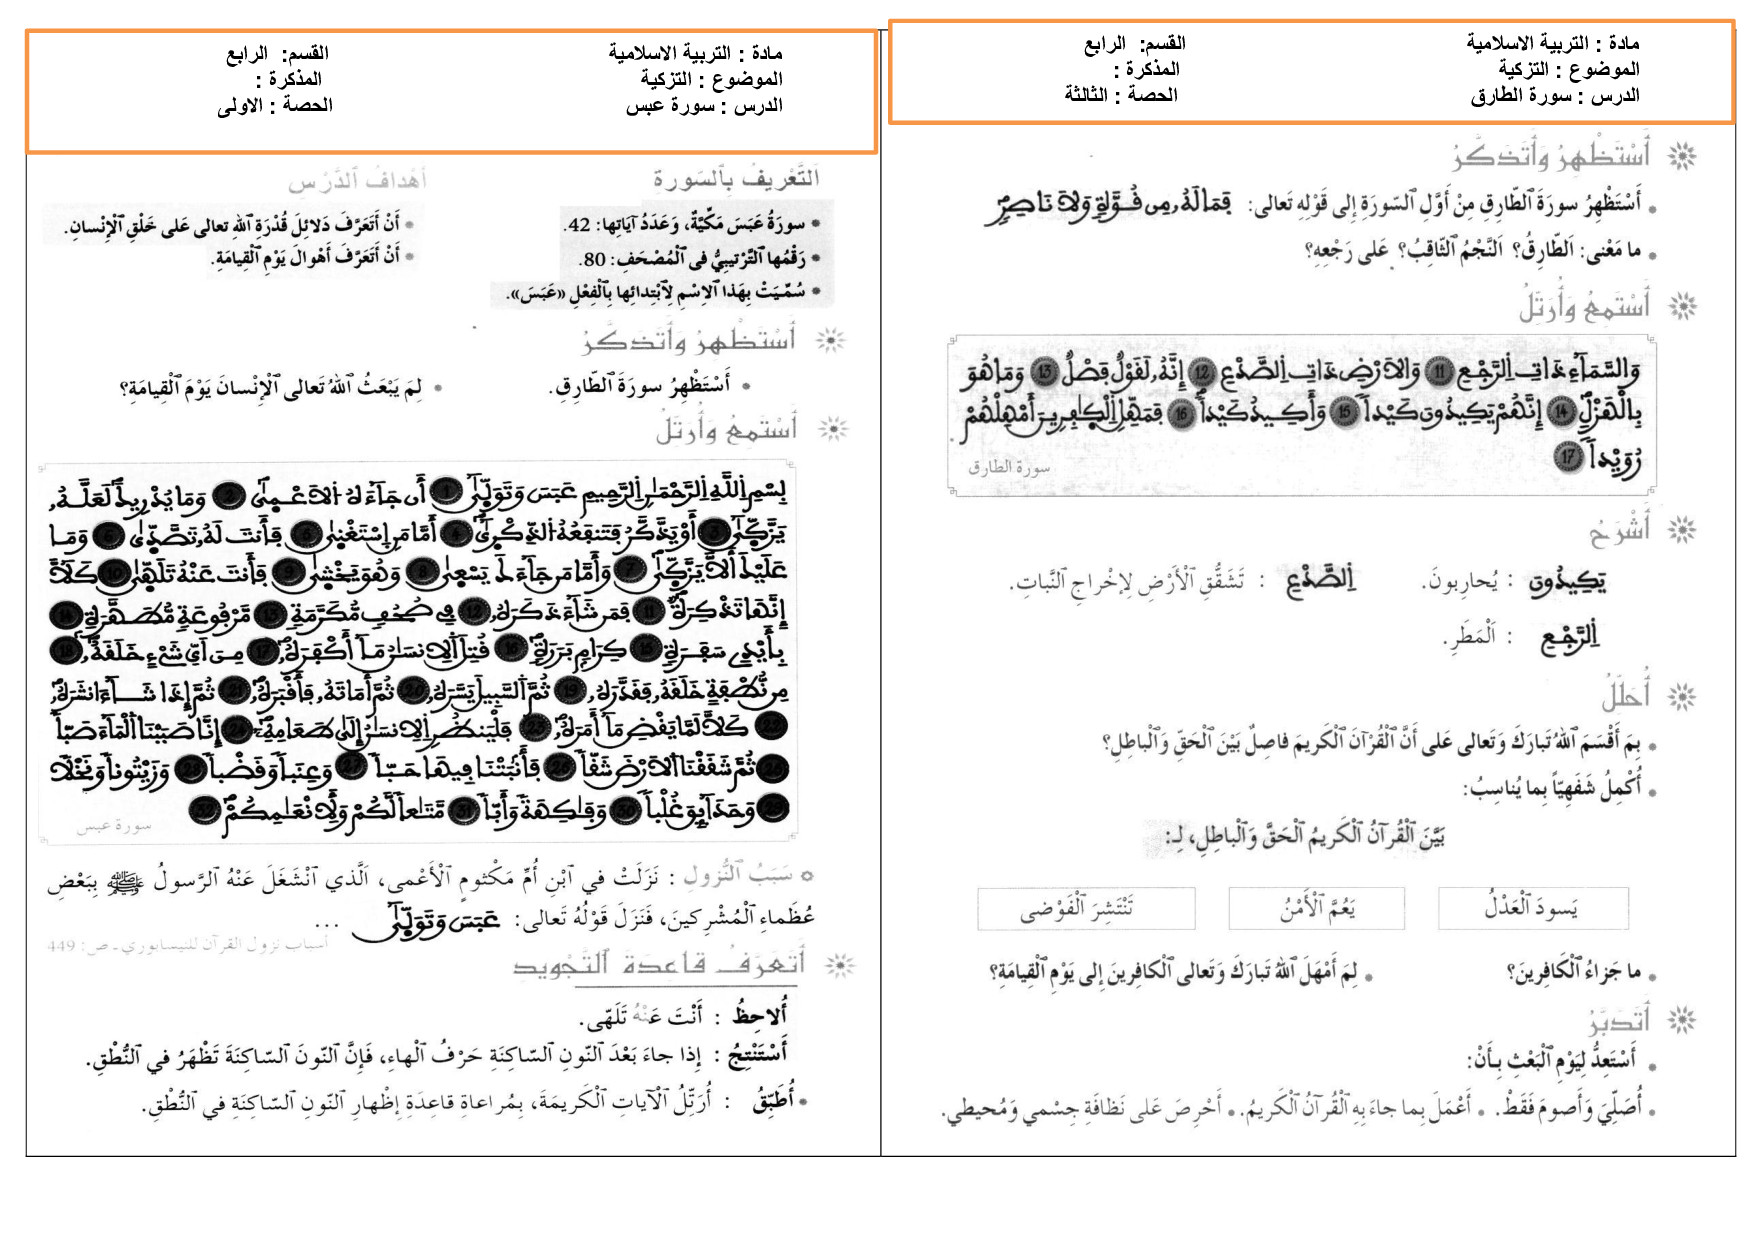 مادة : التربية الاسلامية القسم: الرابع
الموضوع : التزكية المذكرة :
الدرس : سورة الطارق الحصة : الثالثة
أَسْتَظْهِرُ وَأَتَذَكَّرُ
• أَسْتَظْهِرُ سورَةَ ٱلطّارِقِ مِنْ أَوَّلِ ٱلسّورَةِ إِلى قَوْلِهِ تَعالى: فَمَالَهُۥ مِن قُوَّةٍ وَلَا نَاصِرٍ
• ما مَعْنى: اَلطّارِقُ؟ اَلنَّجْمُ ٱلثّاقِبُ؟ عَلى رَجْعِهِ؟
أَسْتَمِعُ وَأُرَتِّلُ
وَالسَّمَآءِ ذَاتِ اِلرَّجْعِ 11 وَالَارْضِ ذَاتِ اِلصَّدْعِ 12 إِنَّهُۥ لَقَوْلٌ فَصْلٌ 13 وَمَا هُوَ
بِالْهَزْلِ 14 إِنَّهُمْ يَكِيدُونَ كَيْداً 15 وَأَكِيدُ كَيْداً 16 فَمَهِّلِ اِلْكٰفِرِينَ أَمْهِلْهُمْ
رُوَيْداً 17
سورة الطارق
أَشْرَحُ
يَكِيدُونَ : يُحارِبونَ. اِلصَّدْعِ : تَشَقُّقِ ٱلْأَرْضِ لِإِخْراجِ ٱلنَّباتِ.
اِلرَّجْعِ : اَلْمَطَرِ.
أُحَلِّلُ
• بِمَ أَقْسَمَ ٱللهُ تَبارَكَ وَتَعالى عَلى أَنَّ ٱلْقُرْآنَ ٱلْكَريمَ فاصِلٌ بَيْنَ ٱلْحَقِّ وَٱلْباطِلِ؟
• أُكْمِلُ شَفَهِيّاً بِما يُناسِبُ:
بَيَّنَ ٱلْقُرْآنُ ٱلْكَريمُ ٱلْحَقَّ وَٱلْباطِلَ، لِـ:
يَسودَ ٱلْعَدْلُ
يَعُمَّ ٱلْأَمْنُ
تَنْتَشِرَ ٱلْفَوْضى
• ما جَزاءُ ٱلْكَافِرينَ؟ • لِمَ أَمْهَلَ ٱللهُ تَبارَكَ وَتَعالى ٱلْكافِرينَ إِلى يَوْمِ ٱلْقِيامَةِ؟
أَتَدَبَّرُ
• أَسْتَعِدُّ لِيَوْمِ ٱلْبَعْثِ بِأَنْ:
• أُصَلِّيَ وَأَصومَ فَقَطْ. • أَعْمَلَ بِما جاءَ بِهِ ٱلْقُرْآنُ ٱلْكَريمُ. • أَحْرِصَ عَلى نَظافَةِ جِسْمي وَمُحيطي.
مادة : التربية الاسلامية القسم: الرابع
الموضوع : التزكية المذكرة :
الدرس : سورة عبس الحصة : الاولى
اَلتَّعْريفُ بِٱلسّورَةِ
• سورَةُ عَبَسَ مَكِّيَّةٌ، وَعَدَدُ آيَاتِها: 42.
• رَقْمُها ٱلتَّرْتيبِيُّ في ٱلْمُصْحَفِ: 80.
• سُمِّيَتْ بِهَذا ٱلِٱسْمِ لِٱبْتِدائِها بِٱلْفِعْلِ «عَبَسَ».
أَهْدافُ ٱلدَّرْسِ
• أَنْ أَتَعَرَّفَ دَلائِلَ قُدْرَةِ ٱللهِ تعالى عَلى خَلْقِ ٱلْإِنْسانِ.
• أَنْ أَتَعَرَّفَ أَهْوالَ يَوْمِ ٱلْقِيامَةِ.
أَسْتَظْهِرُ وَأَتَذَكَّرُ
• أَسْتَظْهِرُ سورَةَ ٱلطّارِقِ. • لِمَ يَبْعَثُ ٱللهُ تَعالى ٱلْإِنْسانَ يَوْمَ ٱلْقِيامَةِ؟
أَسْتَمِعُ وَأُرَتِّلُ
بِسْمِ اِللَّهِ اِلرَّحْمَٰنِ اِلرَّحِيمِ عَبَسَ وَتَوَلّٰىٓ 1 أَن جَآءَهُ اُلَاعْمٰى 2 وَمَا يُدْرِيكَ لَعَلَّهُۥ
يَزَّكّٰىٓ 3 أَوْ يَذَّكَّرُ فَتَنفَعُهُ اُلذِّكْرٰىٓ 4 أَمَّا مَنِ اِسْتَغْنٰى 5 فَأَنتَ لَهُۥ تَصَّدّٰى 6 وَمَا
عَلَيْكَ أَلَّا يَزَّكّٰى 7 وَأَمَّا مَن جَآءَكَ يَسْعٰى 8 وَهُوَ يَخْشٰى 9 فَأَنتَ عَنْهُ تَلَهّٰى 10 كَلَّآ
إِنَّهَا تَذْكِرَةٌ 11 فَمَن شَآءَ ذَكَرَهُۥ 12 فِي صُحُفٍ مُّكَرَّمَةٍ 13 مَّرْفُوعَةٍ مُّطَهَّرَةٍ 14
بِأَيْدِي سَفَرَةٍ 15 كِرَامٍ بَرَرَةٍ 16 قُتِلَ اَلِانسَٰنُ مَآ أَكْفَرَهُۥ 17 مِنَ اَيِّ شَيْءٍ خَلَقَهُۥ 18
مِن نُّطْفَةٍ خَلَقَهُۥ فَقَدَّرَهُۥ 19 ثُمَّ اَلسَّبِيلَ يَسَّرَهُۥ 20 ثُمَّ أَمَاتَهُۥ فَأَقْبَرَهُۥ 21 ثُمَّ إِذَا شَآءَ انشَرَهُۥ
22 كَلَّا لَمَّا يَقْضِ مَآ أَمَرَهُۥ 23 فَلْيَنظُرِ اِلِانسَٰنُ إِلَىٰ طَعَامِهِۦٓ 24 إِنَّا صَبَبْنَا اَلْمَآءَ صَبّاً
25 ثُمَّ شَقَقْنَا اَلَارْضَ شَقّاً 26 فَأَنۢبَتْنَا فِيهَا حَبّاً 27 وَعِنَباً وَقَضْباً 28 وَزَيْتُوناً وَنَخْلاً
29 وَحَدَآئِقَ غُلْباً 30 وَفَٰكِهَةً وَأَبّاً 31 مَّتَٰعاً لَّكُمْ وَلِأَنْعَٰمِكُمْ 32
سورة عبس
سَبَبُ ٱلنُّزولِ : نَزَلَتْ في ٱبْنِ أُمِّ مَكْتومٍ ٱلْأَعْمى، اَلَّذي ٱنْشَغَلَ عَنْهُ ٱلرَّسولُ ﷺ بِبَعْضِ
عُظَماءِ ٱلْمُشْرِكينَ، فَنَزَلَ قَوْلُهُ تَعالى: عَبَسَ وَتَوَلّٰىٓ ...
أسباب نزول القرآن للنيسابوري ـ ص: 449
أَتَعَرَّفُ قاعِدَةَ ٱلتَّجْويدِ
أُلاحِظُ : أَنْتَ عَنْهُ تَلَهّى.
أَسْتَنْتِجُ : إِذا جاءَ بَعْدَ ٱلنّونِ ٱلسّاكِنَةِ حَرْفُ ٱلْهاءِ، فَإِنَّ ٱلنّونَ ٱلسّاكِنَةَ تَظْهَرُ في ٱلنُّطْقِ.
• أُطَبِّقُ : أُرَتِّلُ ٱلْآياتِ ٱلْكَريمَةَ، بِمُراعاةِ قاعِدَةِ إِظْهارِ ٱلنّونِ ٱلسّاكِنَةِ في ٱلنُّطْقِ.